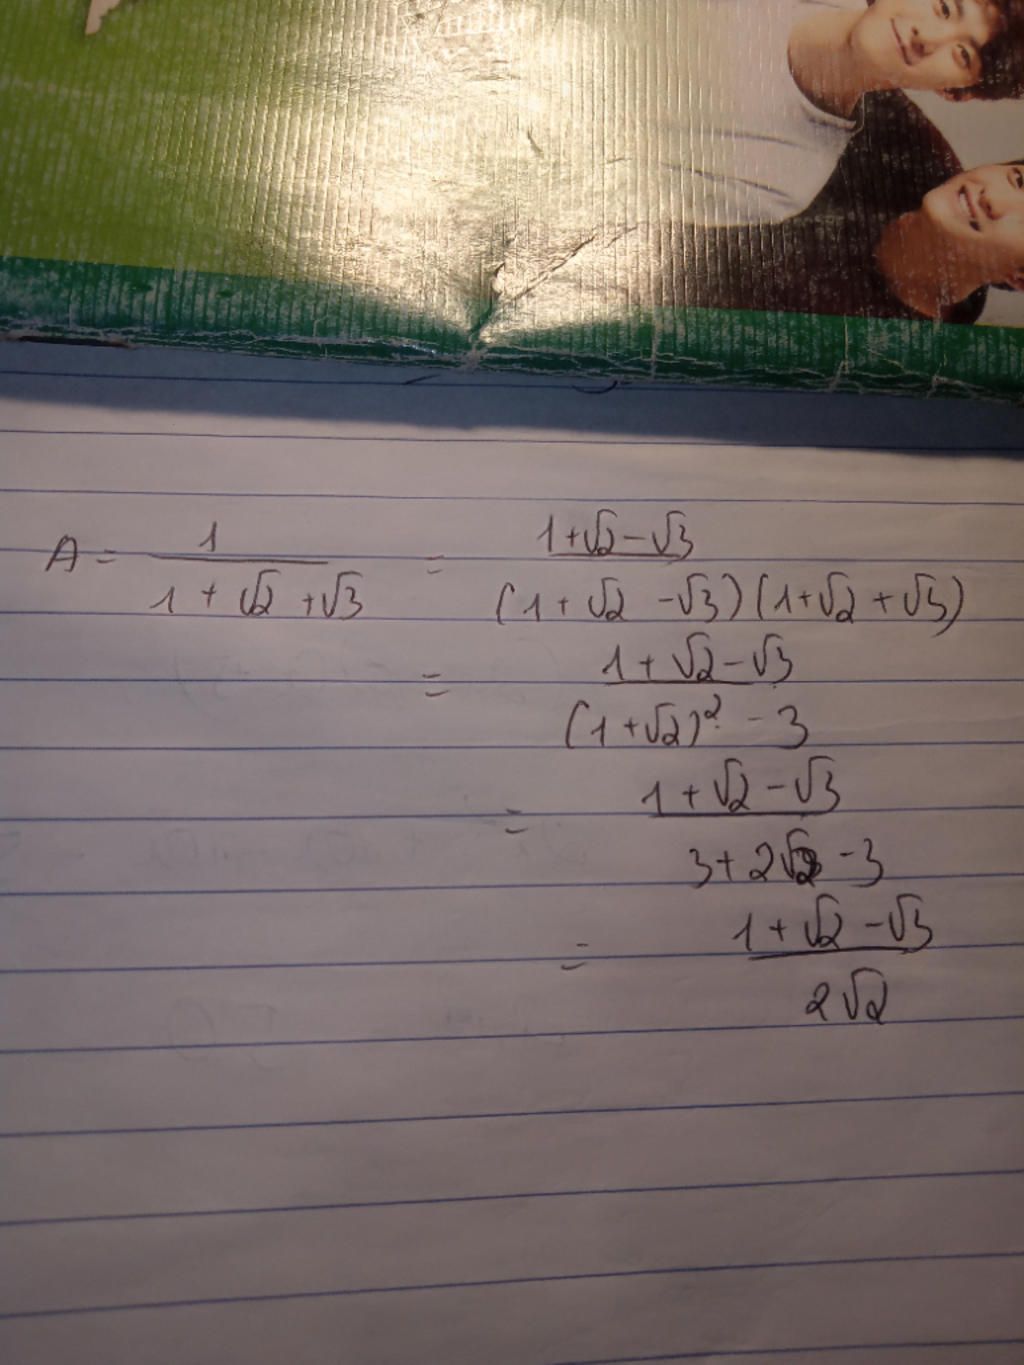 A = 1 / (1 + √2 + √3) = (1 + √2 − √3) / ((1 + √2 − √3)(1 + √2 + √3))
= (1 + √2 − √3) / ((1 + √2)² − 3)
= (1 + √2 − √3) / (3 + 2√2 − 3)
= (1 + √2 − √3) / (2√2)